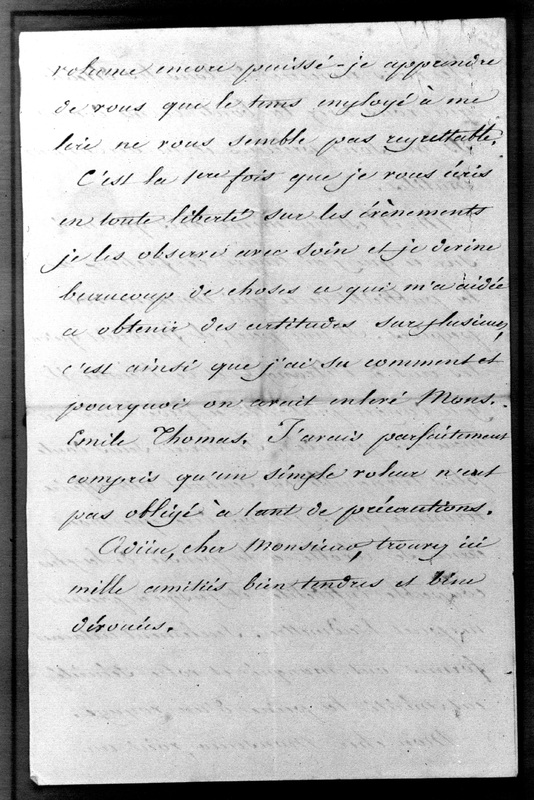 volume encore puissé-je apprendre
de vous que le tems employé à me
lire ne vous semble pas regrettable.
C'est la 1ere fois que je vous écris
en toute liberté sur les évènements
je les observe avec soin et je devine
beaucoup de choses ce qui m'a aidée
a obtenir des certitudes sur plusieurs,
c'est ainsi que j'ai su comment et
pourquoi on avait enlevé Mons.
Emile Thomas. J'avais parfaitement
compris qu'un simple voleur n'eut
pas obligé à tant de précautions.
Adieu, cher Monsieur, trouvez ici
mille amitiés bien tendres et bien
dévouées.